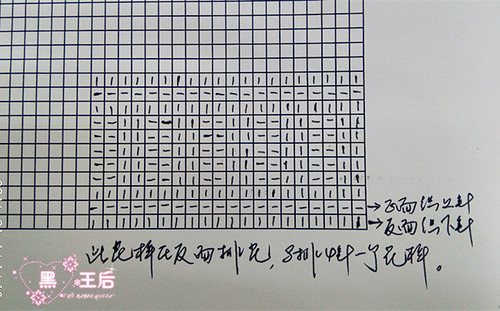 →正面织上针
→反面织下针
此花样在反面排花，3排4针一个花样。
黑 王后